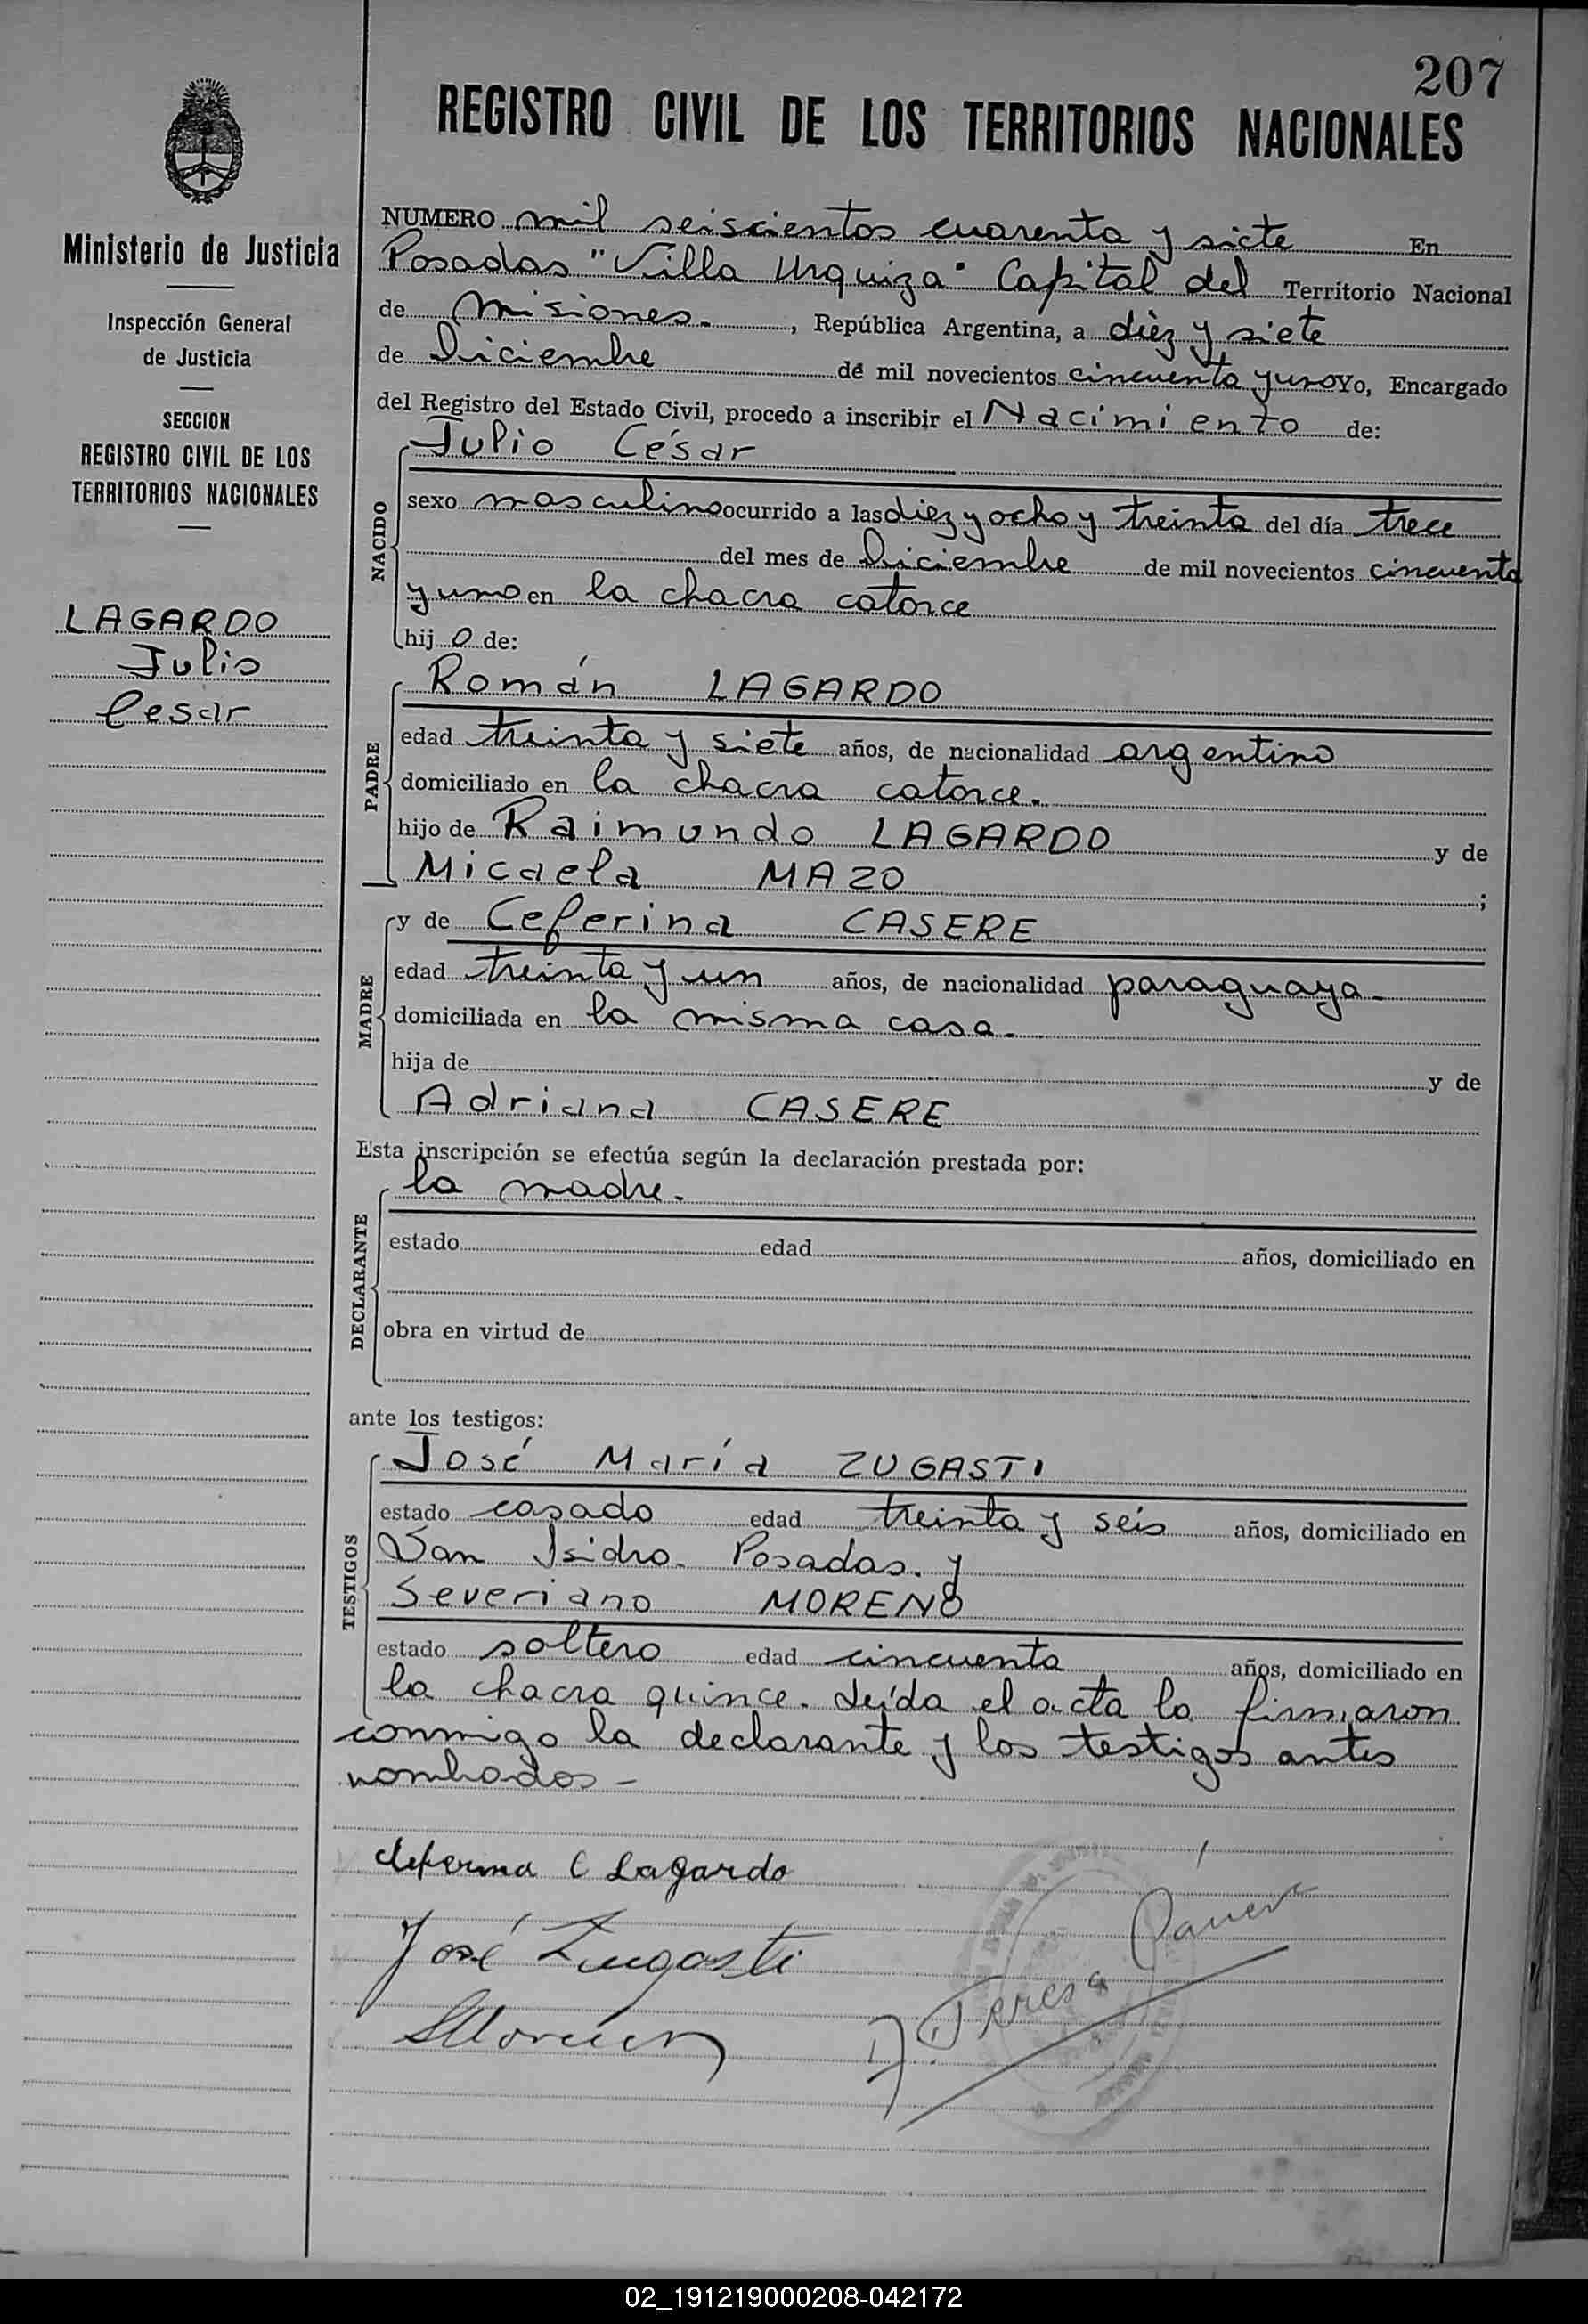 207
REGISTRO CIVIL DE LOS TERRITORIOS NACIONALES
Ministerio de Justicia
Inspección General
de Justicia
SECCION
REGISTRO CIVIL DE LOS
TERRITORIOS NACIONALES
LAGARDO
Julio
Cesar
NUMERO mil seiscientos cuarenta y siete En
Posadas "Villa Urquiza" Capital del Territorio Nacional
de Misiones-, República Argentina, a diez y siete
de Diciembre de mil novecientos cincuenta y uno Yo, Encargado
del Registro del Estado Civil, procedo a inscribir el Nacimiento de:
NACIDO
Julio César
sexo masculino ocurrido a las diez y ocho y treinta del día trece
del mes de Diciembre de mil novecientos cincuenta
y uno en la chacra catorce
hijo de:
PADRE
Román LAGARDO
edad treinta y siete años, de nacionalidad argentino
domiciliado en la chacra catorce.
hijo de Raimundo LAGARDO y de
Micaela MAZO ;
MADRE
y de Ceferina CASERE
edad treinta y un años, de nacionalidad paraguaya-
domiciliada en la misma casa-
hija de y de
Adriana CASERE
Esta inscripción se efectúa según la declaración prestada por:
DECLARANTE
la madre.
estado edad años, domiciliado en
obra en virtud de
ante los testigos:
TESTIGOS
José María ZUGASTI
estado casado edad treinta y seis años, domiciliado en
San Isidro. Posadas. y
Severiano MORENO
estado soltero edad cincuenta años, domiciliado en
la chacra quince. Leída el acta la firmaron
conmigo la declarante y los testigos antes
nombrados-
Ceferina C Lagardo
José Zugasti
Teresa
02_191219000208-042172